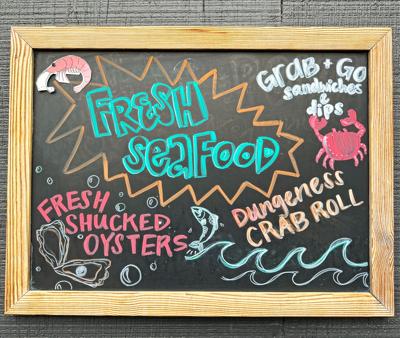 FRESH
seaFOOD
GraB + Go
sandwiches
&
dips
FRESH
SHUCKED
OYSTERS
Dungeness
CRAB ROLL